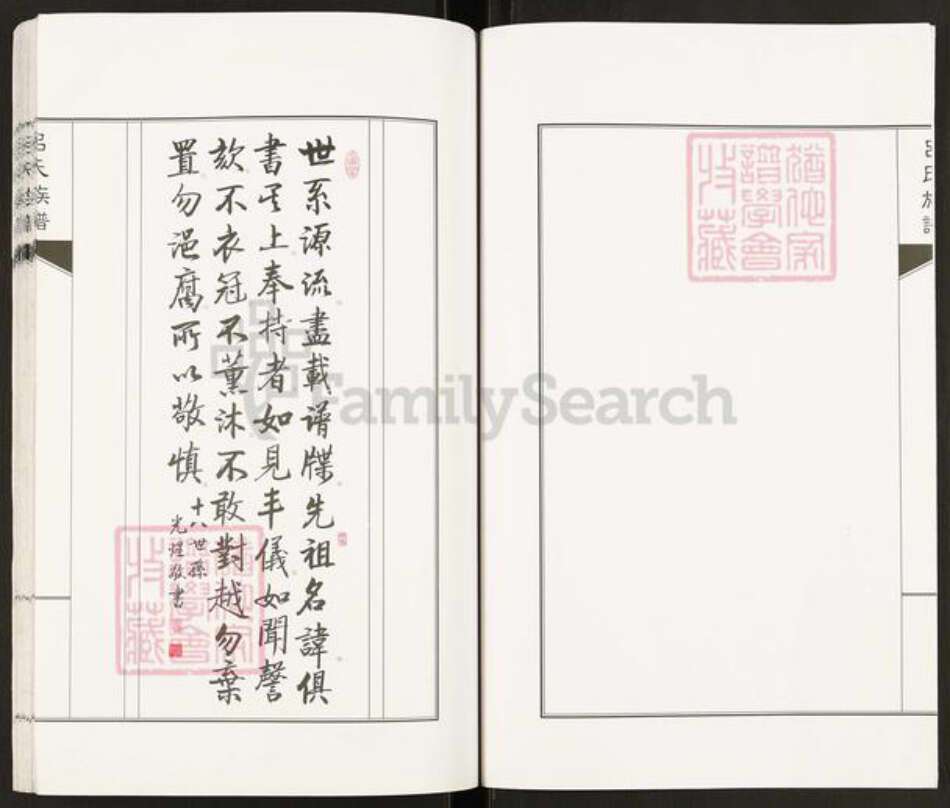 呂氏族譜
猶他家
譜學會
收藏
世系源流盡載譜牒先祖名諱俱
書其上奉持者如見丰儀如聞謦
欬不衣冠不薰沐不敢對越勿棄
置勿浥腐所以敬慎
十八世孫
光煜敬書
猶他家
譜學會
收藏
呂氏族譜
FamilySearch